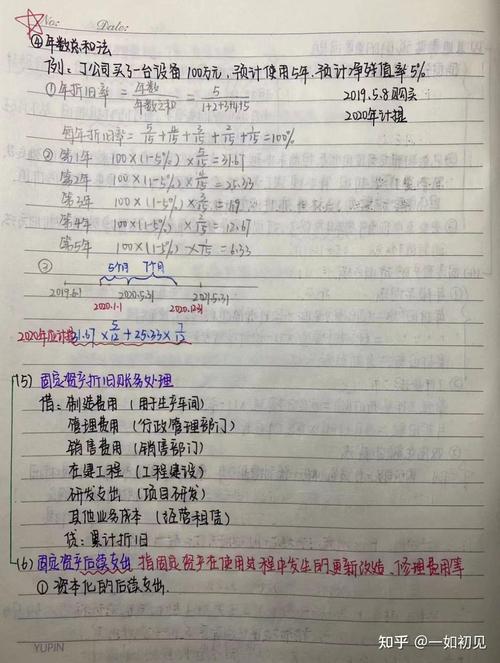 No: Date:
④年数总和法
例：丁公司买了一台设备100万元，预计使用5年，预计净残值率5%
①年折旧率 = 年数/年数之和 = 5/1+2+3+4+5
2019.5.8购买
2020年计提
每年折旧率 = 5/15 + 4/15 + 3/15 + 2/15 + 1/15 = 100%
② 第1年 100×(1-5%) × 5/15 = 31.67
第2年 100×(1-5%) × 4/15 = 25.33
第3年 100×(1-5%) × 3/15 = 19
第4年 100×(1-5%) × 2/15 = 12.67
第5年 100×(1-5%) × 1/15 = 6.33
③ 5个月 7个月
2019.6.1 2020.5.31 2021.5.31
2020.1.1 2020.12.31
2020年应计提 31.67 × 5/12 + 25.33 × 7/12
(5) 固定资产折旧账务处理
借：制造费用（用于生产车间）
管理费用（行政管理部门）
销售费用（销售部门）
在建工程（工程建设）
研发支出（项目研发）
其他业务成本（经营租赁）
贷：累计折旧
(6) 固定资产后续支出 指固定资产在使用过程中发生的更新改造、修理费用等
① 资本化的后续支出.
YUPIN
知乎 @一如初见